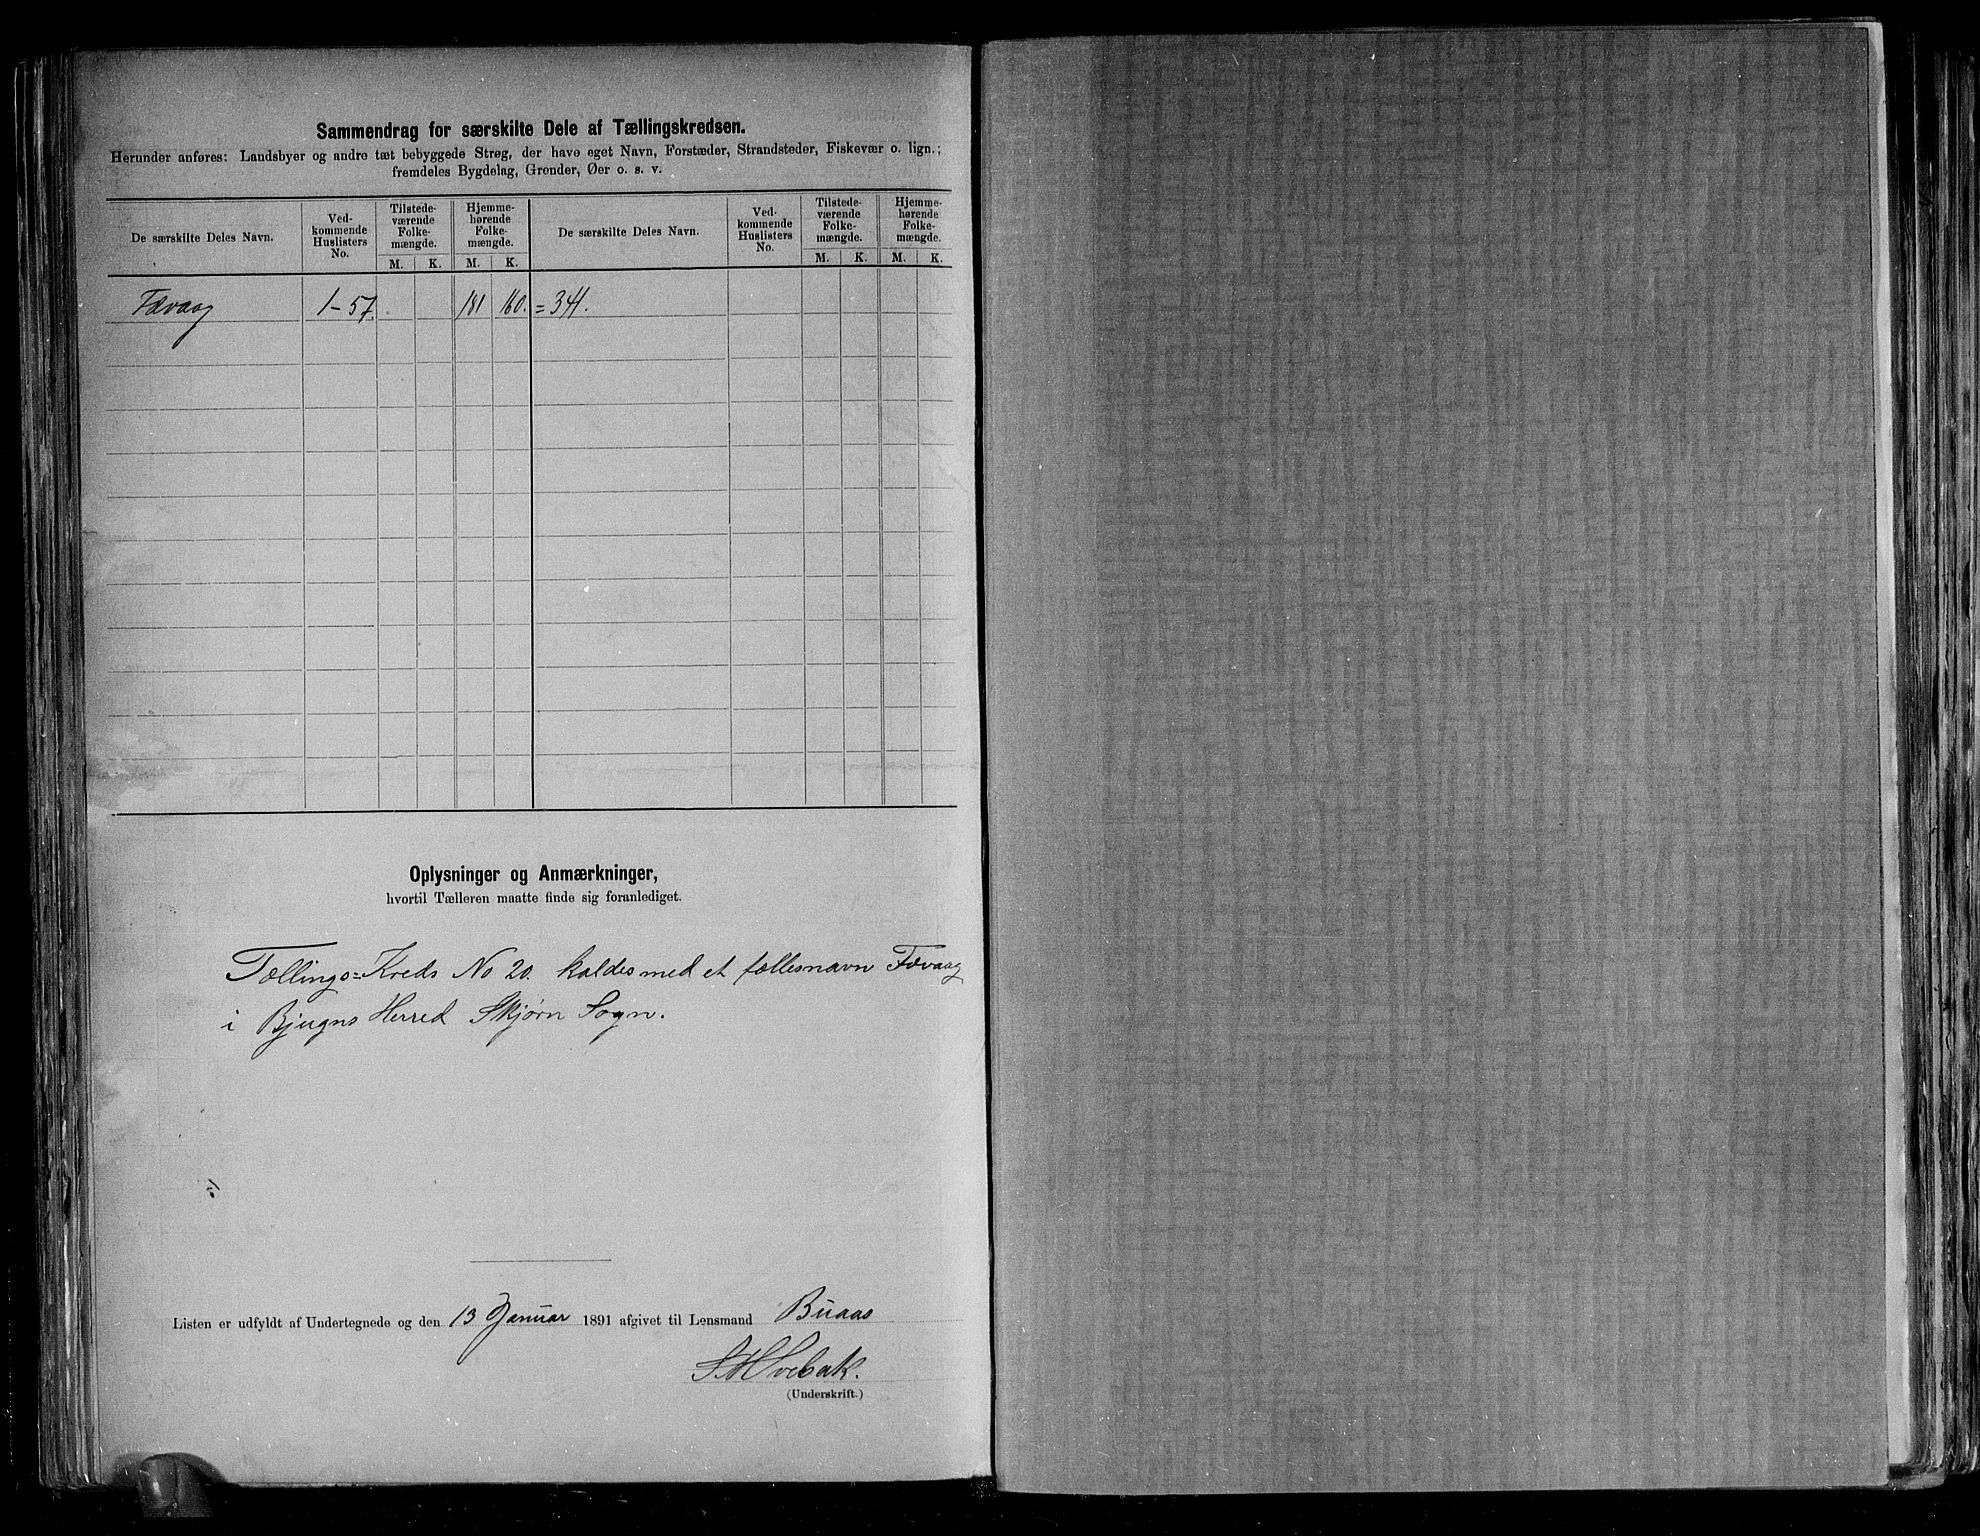 Sammendrag for særskilte Dele af Tællingskredsen.
Herunder anføres: Landsbyer og andre tæt bebyggede Strøg, der have eget Navn, Forstæder, Strandsteder, Fiskevær o. lign.;
fremdeles Bygdelag, Grender, Øer o. s. v.
De særskilte Deles Navn. Ved- kommende Huslisters No. Tilstede- værende Folke- mængde. Hjemme- hørende Folke- mængde. De særskilte Deles Navn. Ved- kommende Huslisters No. Tilstede- værende Folke- mængde. Hjemme- hørende Folke- mængde.
M. K. M. K. M. K. M. K.
Fævaag 1-57. 181 160. = 341.
Oplysninger og Anmærkninger,
hvortil Tælleren maatte finde sig foranlediget.
Tællings=Kreds No 20. kaldes med et fællesnavn Fævaag
i Bjugns Herred Skjørn Sogn.
Listen er udfyldt af Undertegnede og den 13 Januar 1891 afgivet til Lensmand Buaas
(Underskrift.)